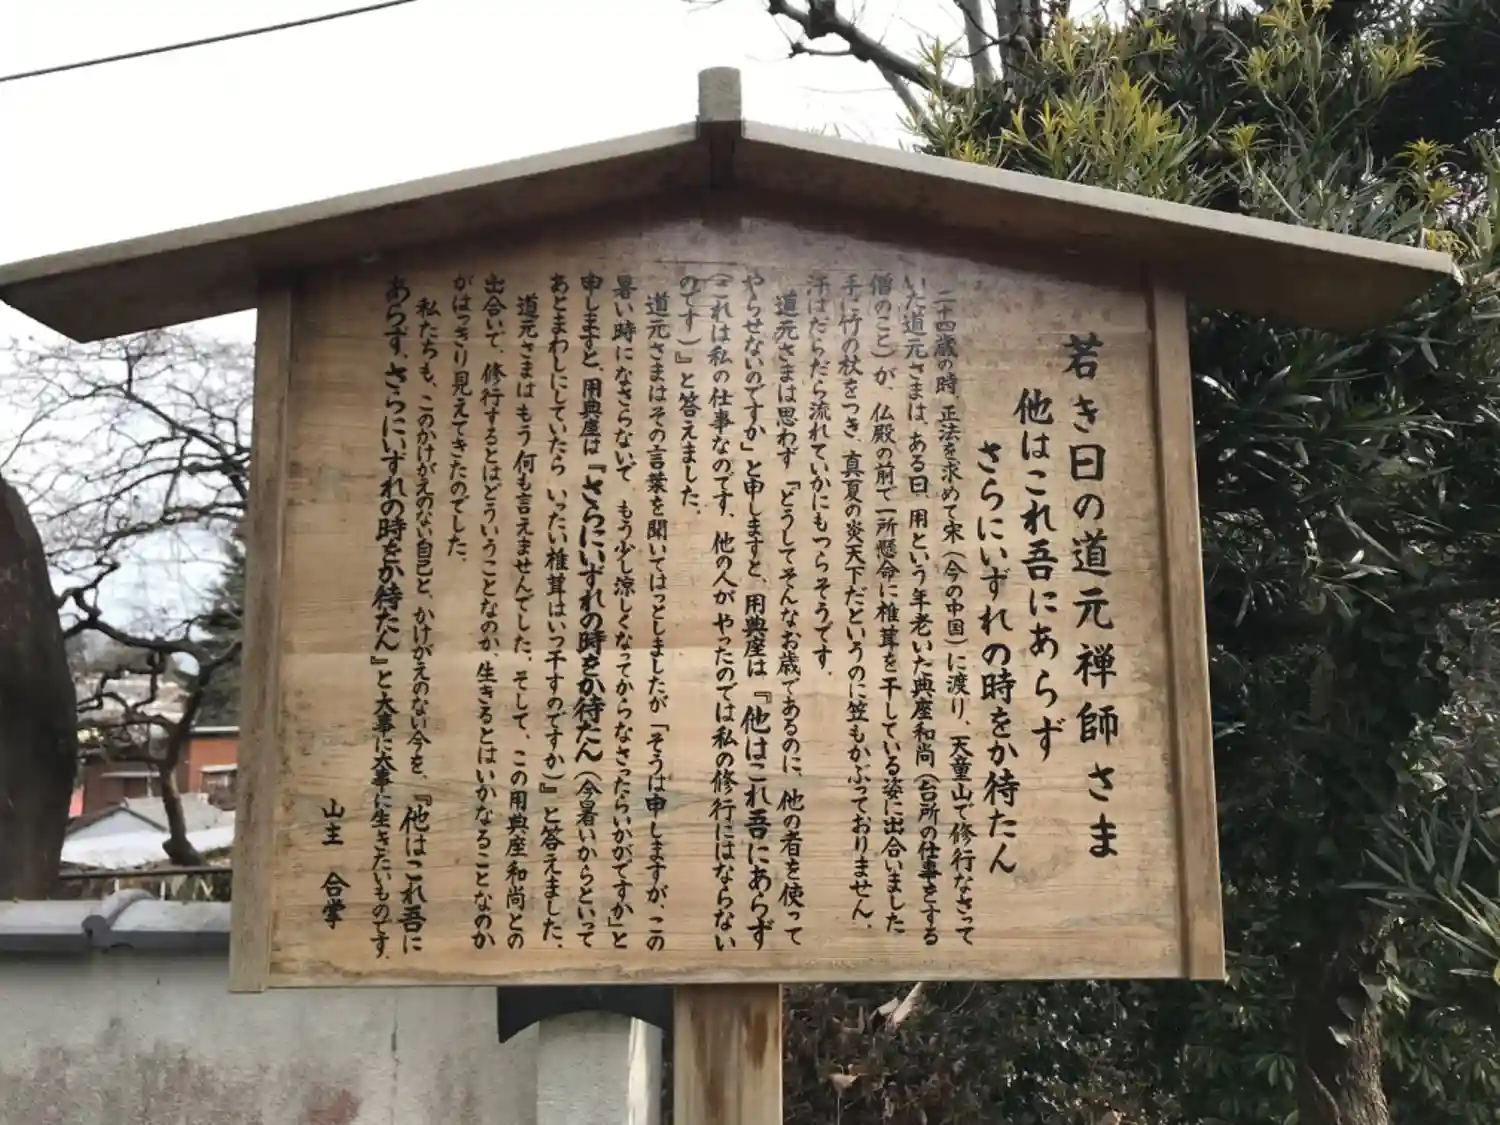 若き日の道元禅師さま
他はこれ吾にあらず
さらにいずれの時をか待たん
二十四歳の時、正法を求めて宋（今の中国）に渡り、天童山で修行なさって
いた道元さまは、ある日、用という年老いた典座和尚（台所の仕事をする
僧のこと）が、仏殿の前で一所懸命に椎茸を干している姿に出合いました
手に竹の杖をつき、真夏の炎天下だというのに笠もかぶっておりません。
汗はだらだら流れていかにもつらそうです。
道元さまは思わず「どうしてそんなお歳であるのに、他の者を使って
やらせないのですか」と申しますと、用典座は『他はこれ吾にあらず
（これは私の仕事なのです、他の人がやったのでは私の修行にはならない
のです）』と答えました。
道元さまはその言葉を聞いてはっとしましたが「そうは申しますが、この
暑い時になさらないで、もう少し涼しくなってからなさったらいかがですか」と
申しますと、用典座は『さらにいずれの時をか待たん（今暑いからといって
あとまわしにしていたら いったい椎茸はいつ干すのですか）』と答えました。
道元さまはもう何も言えませんでした。そして、この用典座和尚との
出合いで、修行するとはどういうことなのか、生きるとはいかなることなのか
がはっきり見えてきたのでした。
私たちも、このかけがえのない自己と、かけがえのない今を、『他はこれ吾に
あらず、さらにいずれの時をか待たん』と大事に大事に生きたいものです。
山主 合掌